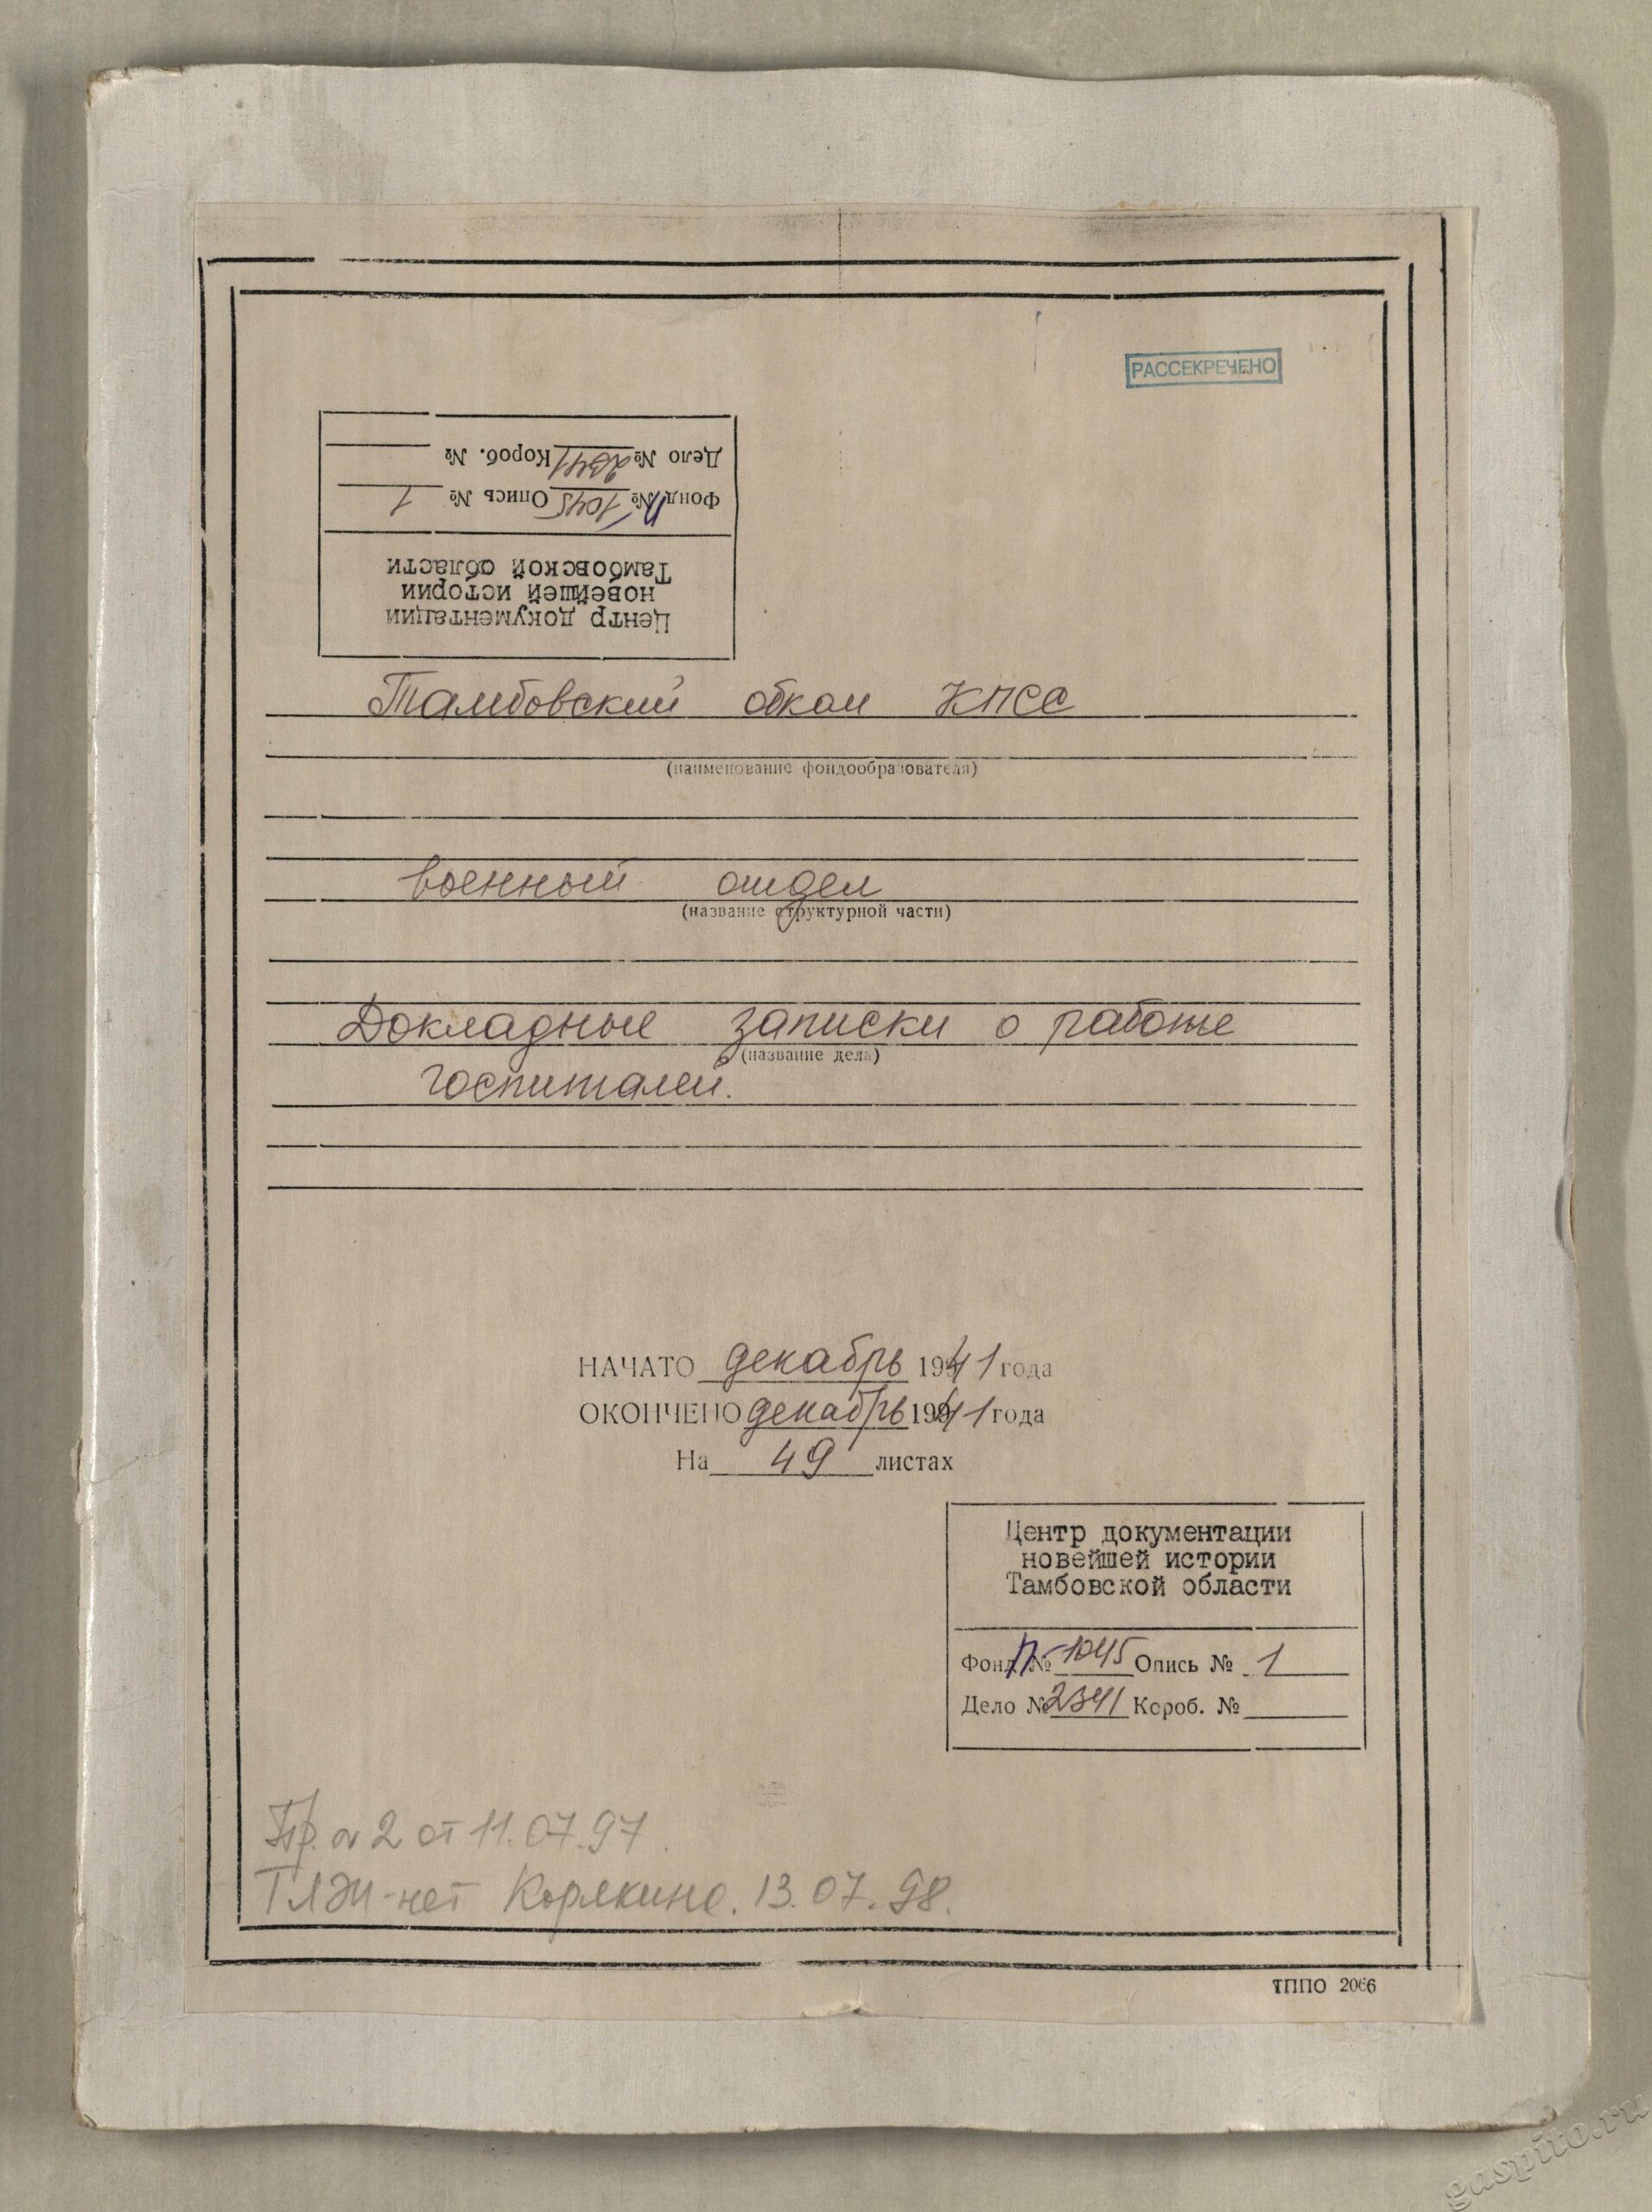 РАССЕКРЕЧЕНО
Дело № 2341 Короб. №
Фонд П № 1045 Опись № 1
Центр документации
новейшей истории
Тамбовской области
Тамбовский обком КПСС
(наименование фондообразователя)
военный отдел
(название структурной части)
Докладные записки о работе
(название дела)
госпиталей.
НАЧАТО декабрь 1941 года
ОКОНЧЕНО декабрь 1941 года
На 49 листах
Центр документации
новейшей истории
Тамбовской области
Фонд П № 1045 Опись № 1
Дело № 2341 Короб. №
Пр. № 2 от 11.07.97.
нет Корякина. 13.07.98.
ТППО 2066
gaspito.ru